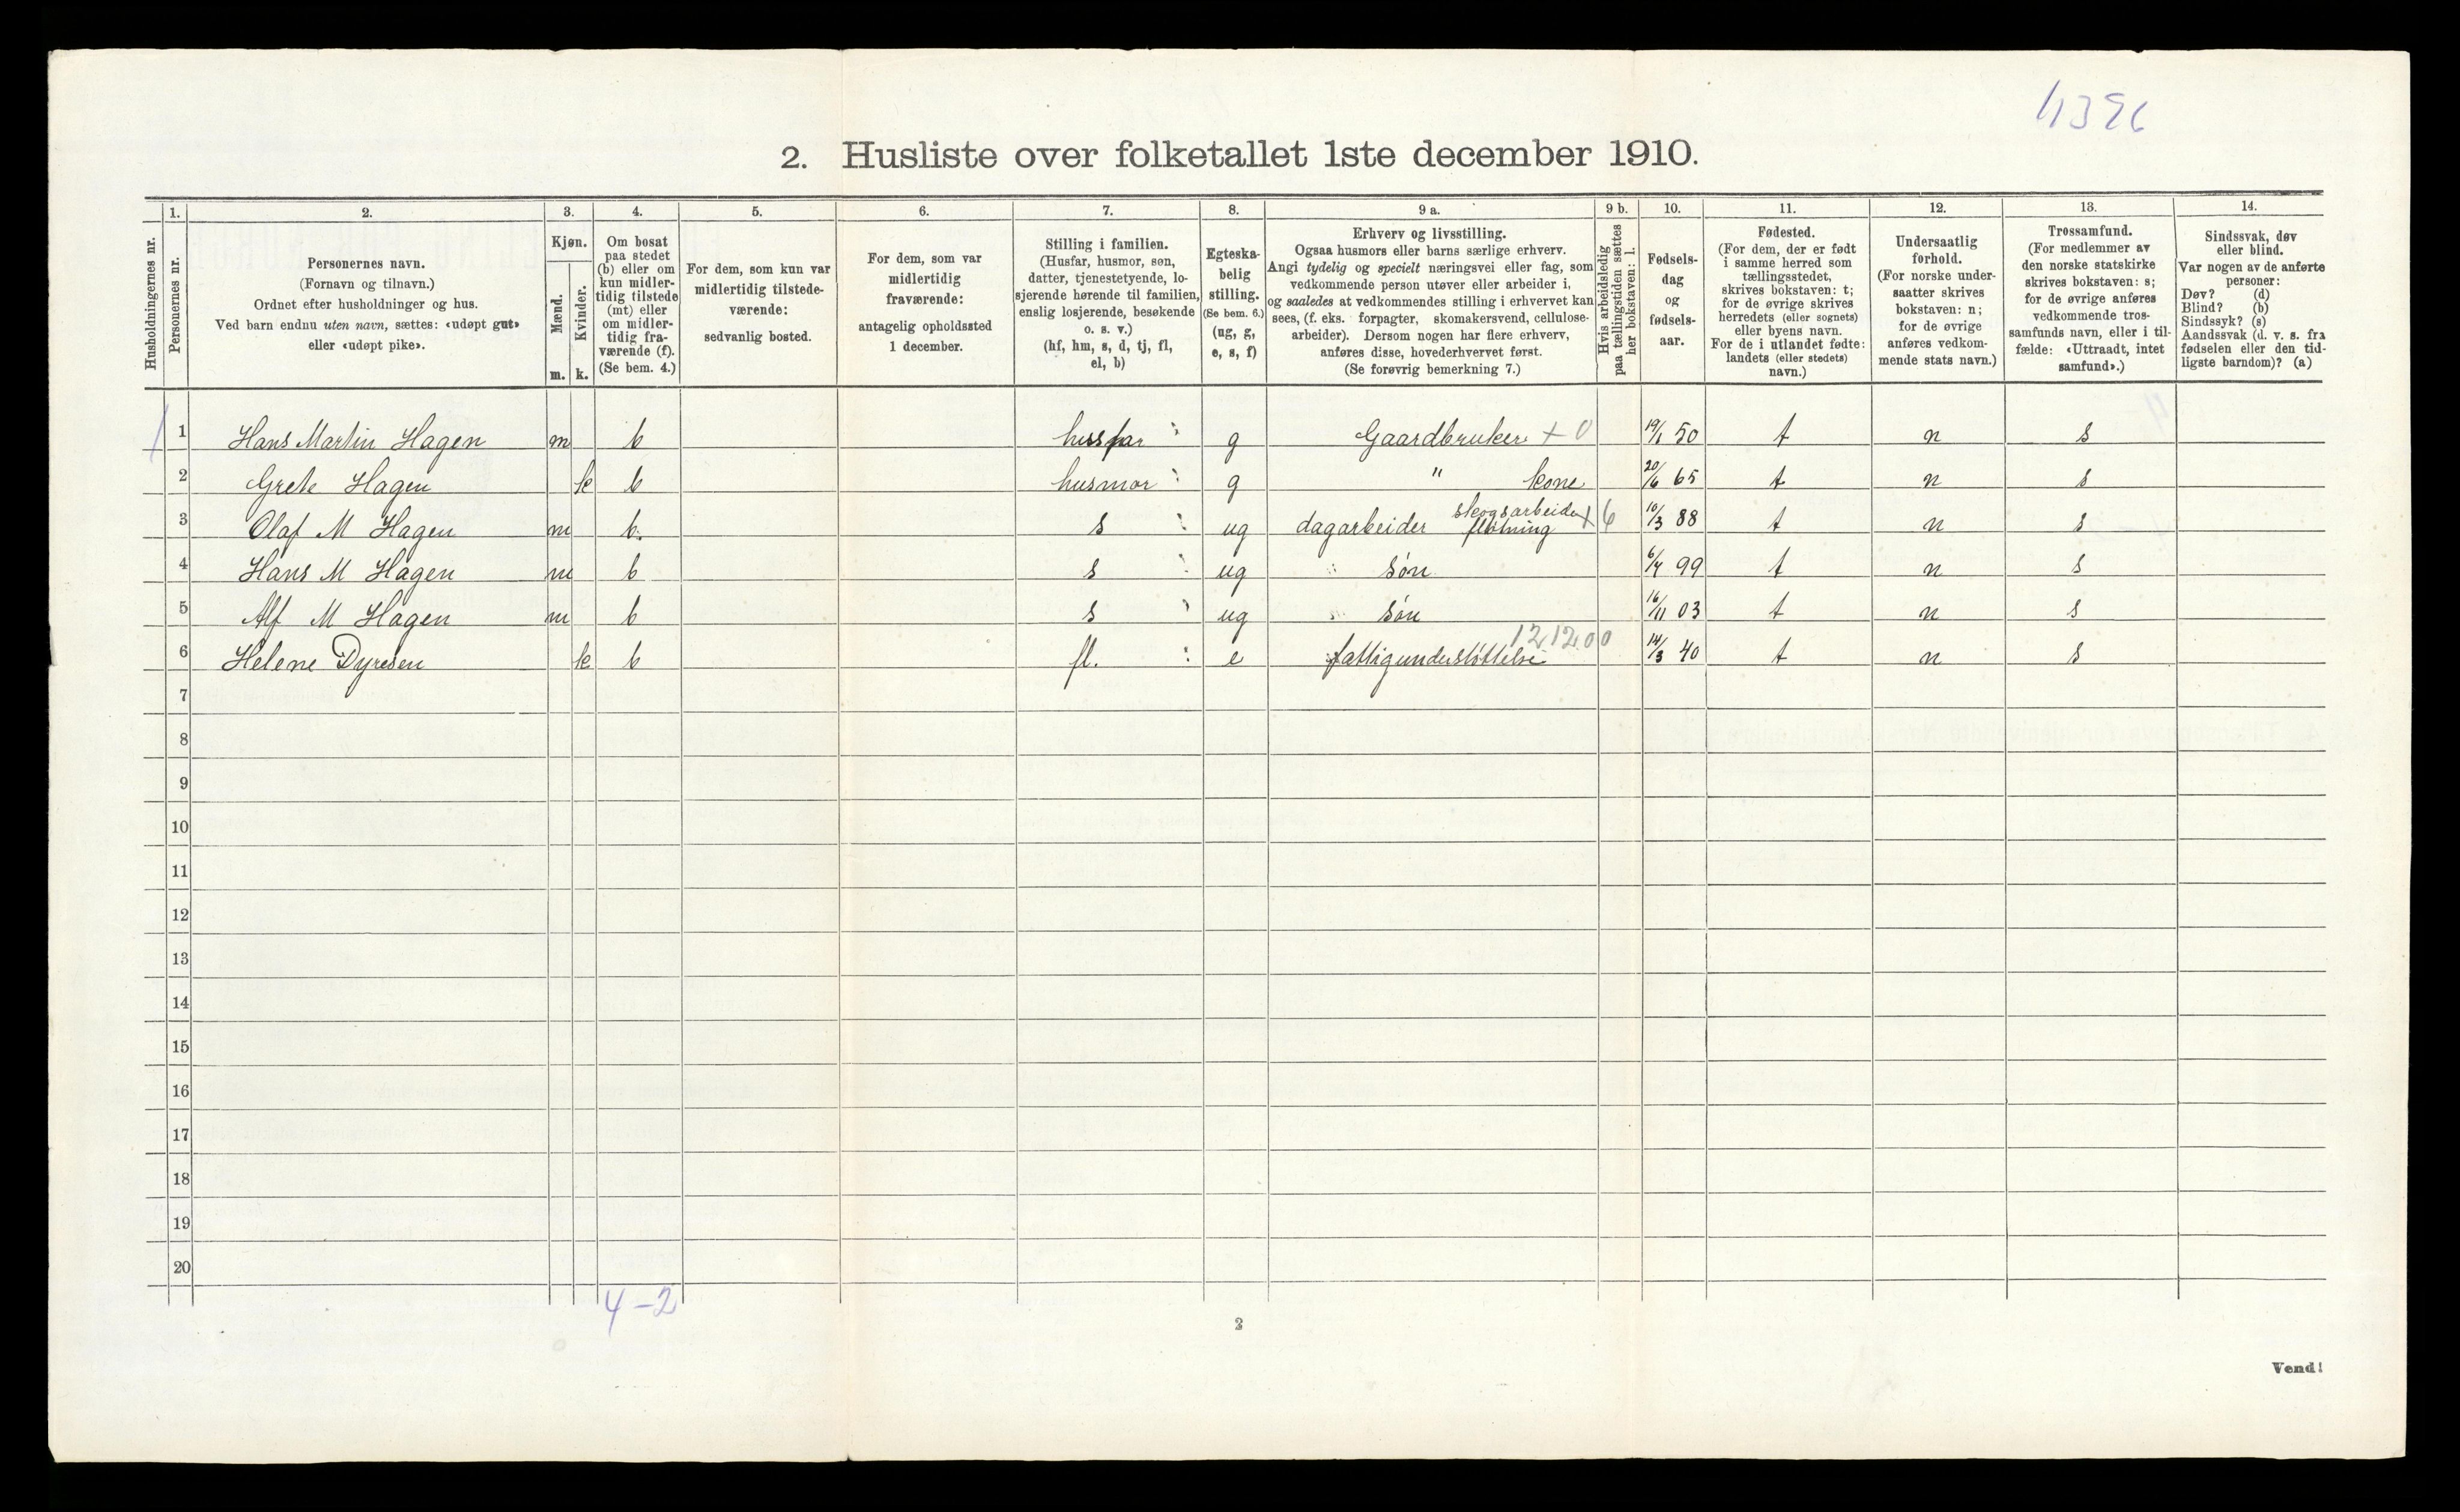 4396
2. Husliste over folketallet 1ste december 1910.
1. 2. 3. 4. 5. 6. 7. 8. 9 a. 9 b. 10. 11. 12. 13. 14.
Husholdningernes nr.
Personernes nr.
Personernes navn.
(Fornavn og tilnavn.)
Ordnet efter husholdninger og hus.
Ved barn endnu uten navn, sættes: «udøpt gut»
eller «udøpt pike».
Kjøn.
Mænd.
Kvinder.
m. k.
Om bosat
paa stedet
(b) eller om
kun midler-
tidig tilstede
(mt) eller
om midler-
tidig fra-
værende (f).
(Se bem. 4.)
For dem, som kun var
midlertidig tilstede-
værende:
sedvanlig bosted.
For dem, som var
midlertidig
fraværende:
antagelig opholdssted
1 december.
Stilling i familien.
(Husfar, husmor, søn,
datter, tjenestetyende, lo-
sjerende hørende til familien,
enslig losjerende, besøkende
o. s. v.)
(hf, hm, s, d, tj, fl,
el, b)
Egteska-
belig
stilling.
(Se bem. 6.)
(ug, g,
e, s, f)
Erhverv og livsstilling.
Ogsaa husmors eller barns særlige erhverv.
Angi tydelig og specielt næringsvei eller fag, som
vedkommende person utøver eller arbeider i,
og saaledes at vedkommendes stilling i erhvervet kan
sees, (f. eks. forpagter, skomakersvend, cellulose-
arbeider). Dersom nogen har flere erhverv,
anføres disse, hovederhvervet først.
(Se forøvrig bemerkning 7.)
Hvis arbeidsledig
paa tællingstiden sættes
her bokstaven: l.
Fødsels-
dag
og
fødsels-
aar.
Fødested.
(For dem, der er født
i samme herred som
tællingsstedet,
skrives bokstaven: t;
for de øvrige skrives
herredets (eller sognets)
eller byens navn.
For de i utlandet fødte:
landets (eller stedets)
navn.)
Undersaatlig
forhold.
(For norske under-
saatter skrives
bokstaven: n;
for de øvrige
anføres vedkom-
mende stats navn.)
Trossamfund.
(For medlemmer av
den norske statskirke
skrives bokstaven: s;
for de øvrige anføres
vedkommende tros-
samfunds navn, eller i til-
fælde: «Uttraadt, intet
samfund».)
Sindssvak, døv
eller blind.
Var nogen av de anførte
personer:
Døv? (d)
Blind? (b)
Sindssyk? (s)
Aandssvak (d. v. s. fra
fødselen eller den tid-
ligste barndom)? (a)
1 1 Hans Martin Hagen m b husfar g Gaardbruker + 0 19/1 50 t n s
2 Grete Hagen k b husmor g " kone 20/6 65 t n s
skogsarbeider
3 Olaf M Hagen m b. s ug dagarbeider fløtning + 6 10/3 88 t n s
4 Hans M Hagen m b s ug " søn 6/4 99 t n s
5 Alf M Hagen m b s ug " søn 16/11 03 t n s
12.12.00
6 Helene Dyresen k b fl. e fattigunderstøttelse 14/3 40 t n s
7
8
9
10
11
12
13
14
15
16
17
18
19
20
4 - 2
2
Vend!